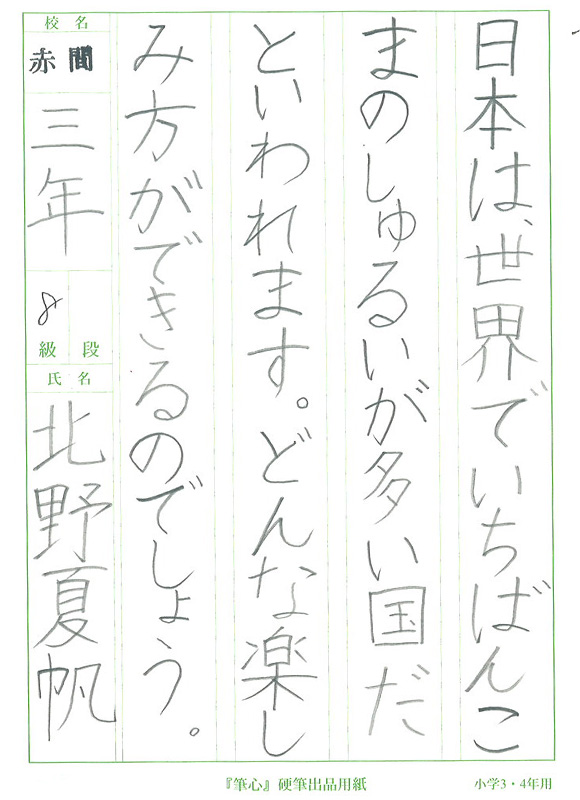 日本は、世界でいちばんこ
まのしゅるいが多い国だ
といわれます。どんな楽し
み方ができるのでしょう。
校名
赤間
三年
8
級段
氏名
北野夏帆
『筆心』硬筆出品用紙
小学3・4年用